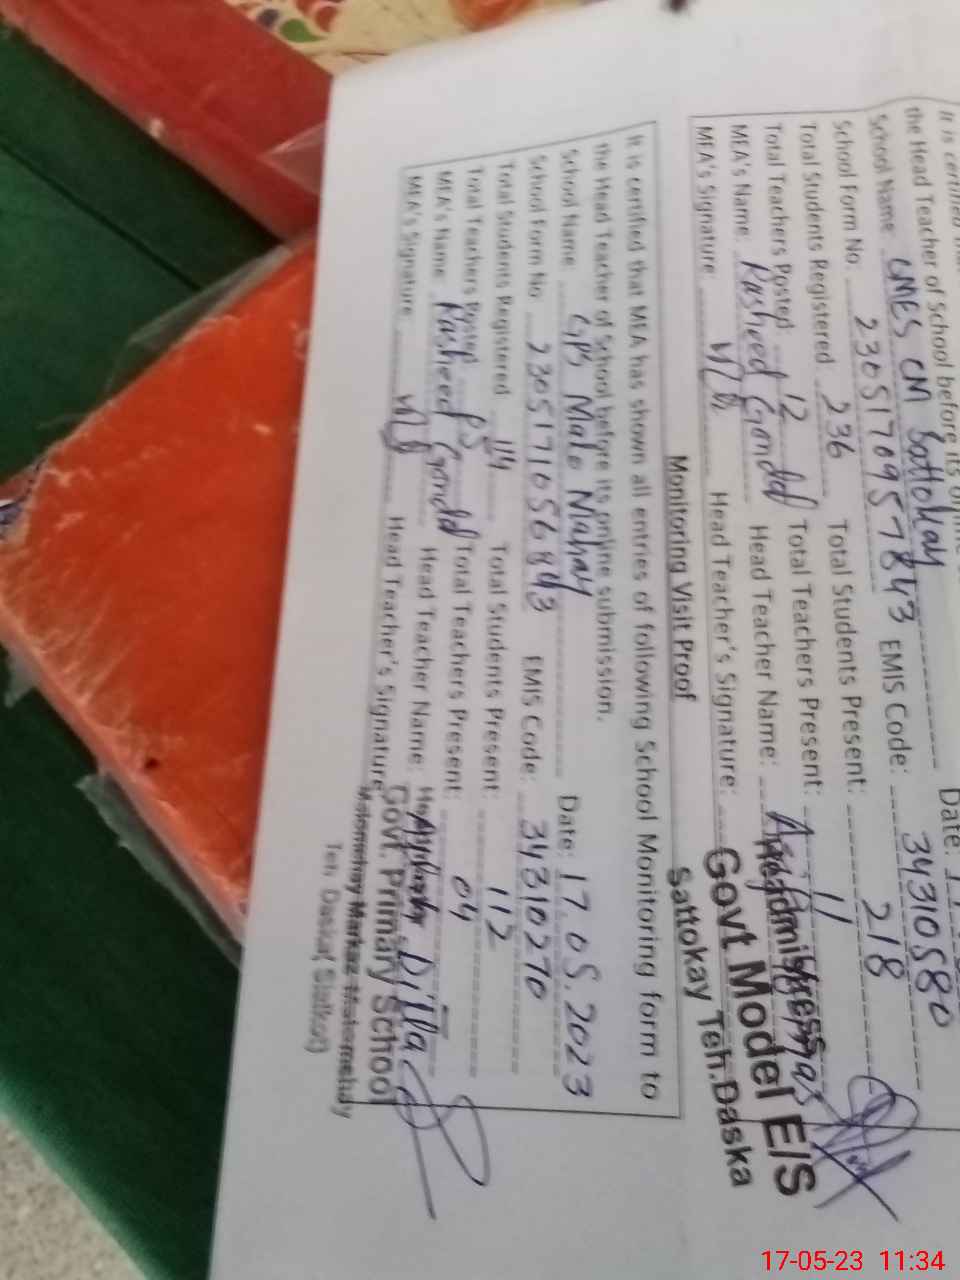 It is certified
the Head Teacher of School before its
School Name GMES CM Sattokay Date:
School Form No: 2305170957843 EMIS Code: 34310580
Total Students Registered 236 Total Students Present: 218
Total Teachers Posted: 12 Total Teachers Present: 11
MEA's Name: Rasheed Gondal Head Teacher Name:
MEA's Signature Head Teacher's Signature:
Headmistress
Govt Model E/S
Sattokay Teh.Daska
Monitoring Visit Proof
It is certified that MEA has shown all entries of following School Monitoring form to
the Head Teacher of School before its online submission.
School Name GPS Malo Mahay Date: 17.05.2023
School Form No 2305171056443 EMIS Code: 34310270
Total Students Registered 114 Total Students Present: 112
Total Teachers Posted 05 Total Teachers Present: 04
MEA's Name Rasheed Gondal Head Teacher Name:
MEA's Signature Head Teacher's Signature
Govt. Primary School
Teh Daska( Sialkot)
17-05-23 11:34